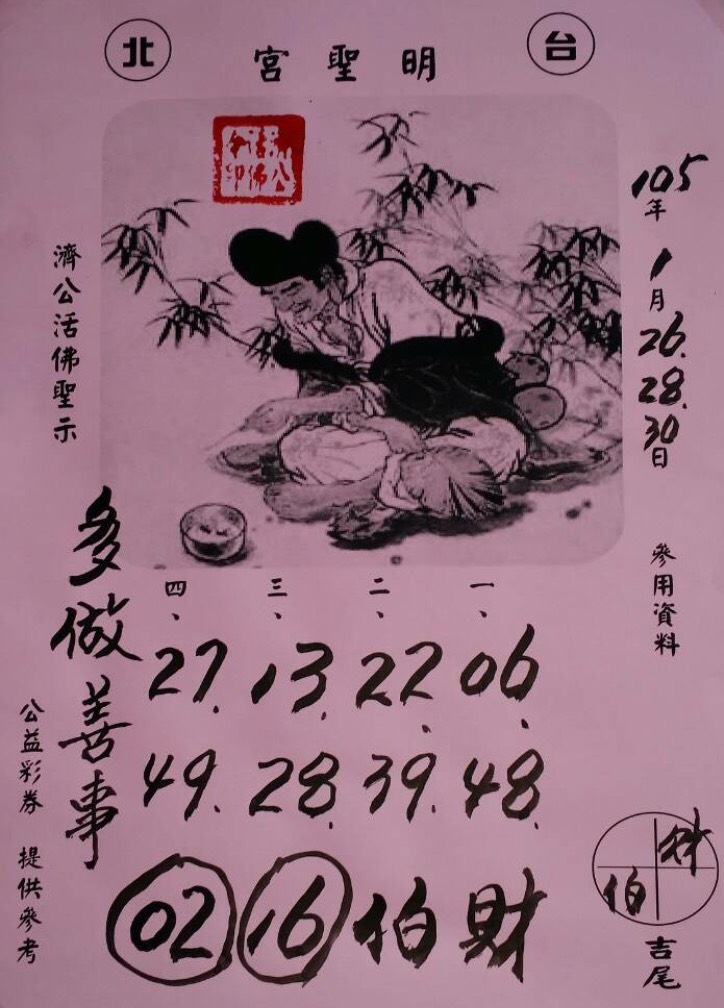 台北
明聖宮
105年1月26.28.30日
參用資料
濟公活佛聖示
一、 06. 48.
二、 22. 39.
三、 13. 28.
四、 27. 49.
財 伯 16 02
多做善事
公益彩券 提供參考
財
伯
吉尾